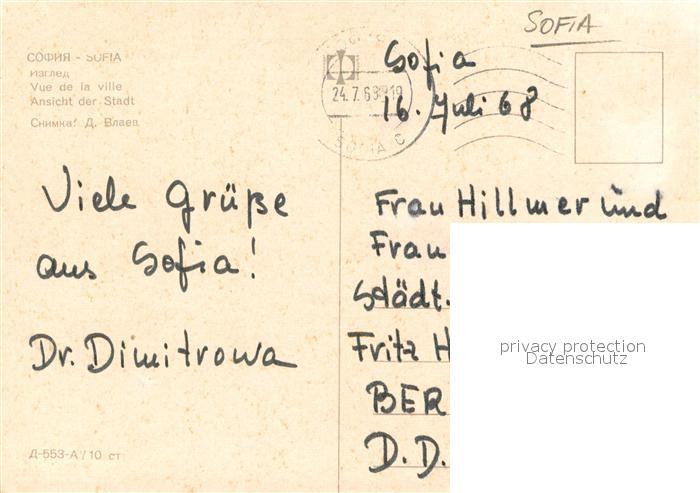 SOFIA
СОФИЯ - SOFIA
Изглед
Vue de la ville
Ansicht der Stadt
Снимка: Д. Влаев
24.7.68
SOFIA C
Sofia
16. Juli 68
Viele Grüße
aus Sofia!
Dr. Dimitrowa
Frau Hillmer und
Frau
Städt.
Fritz H
BER
D.D.
privacy protection
Datenschutz
Д-553-А/10 ст